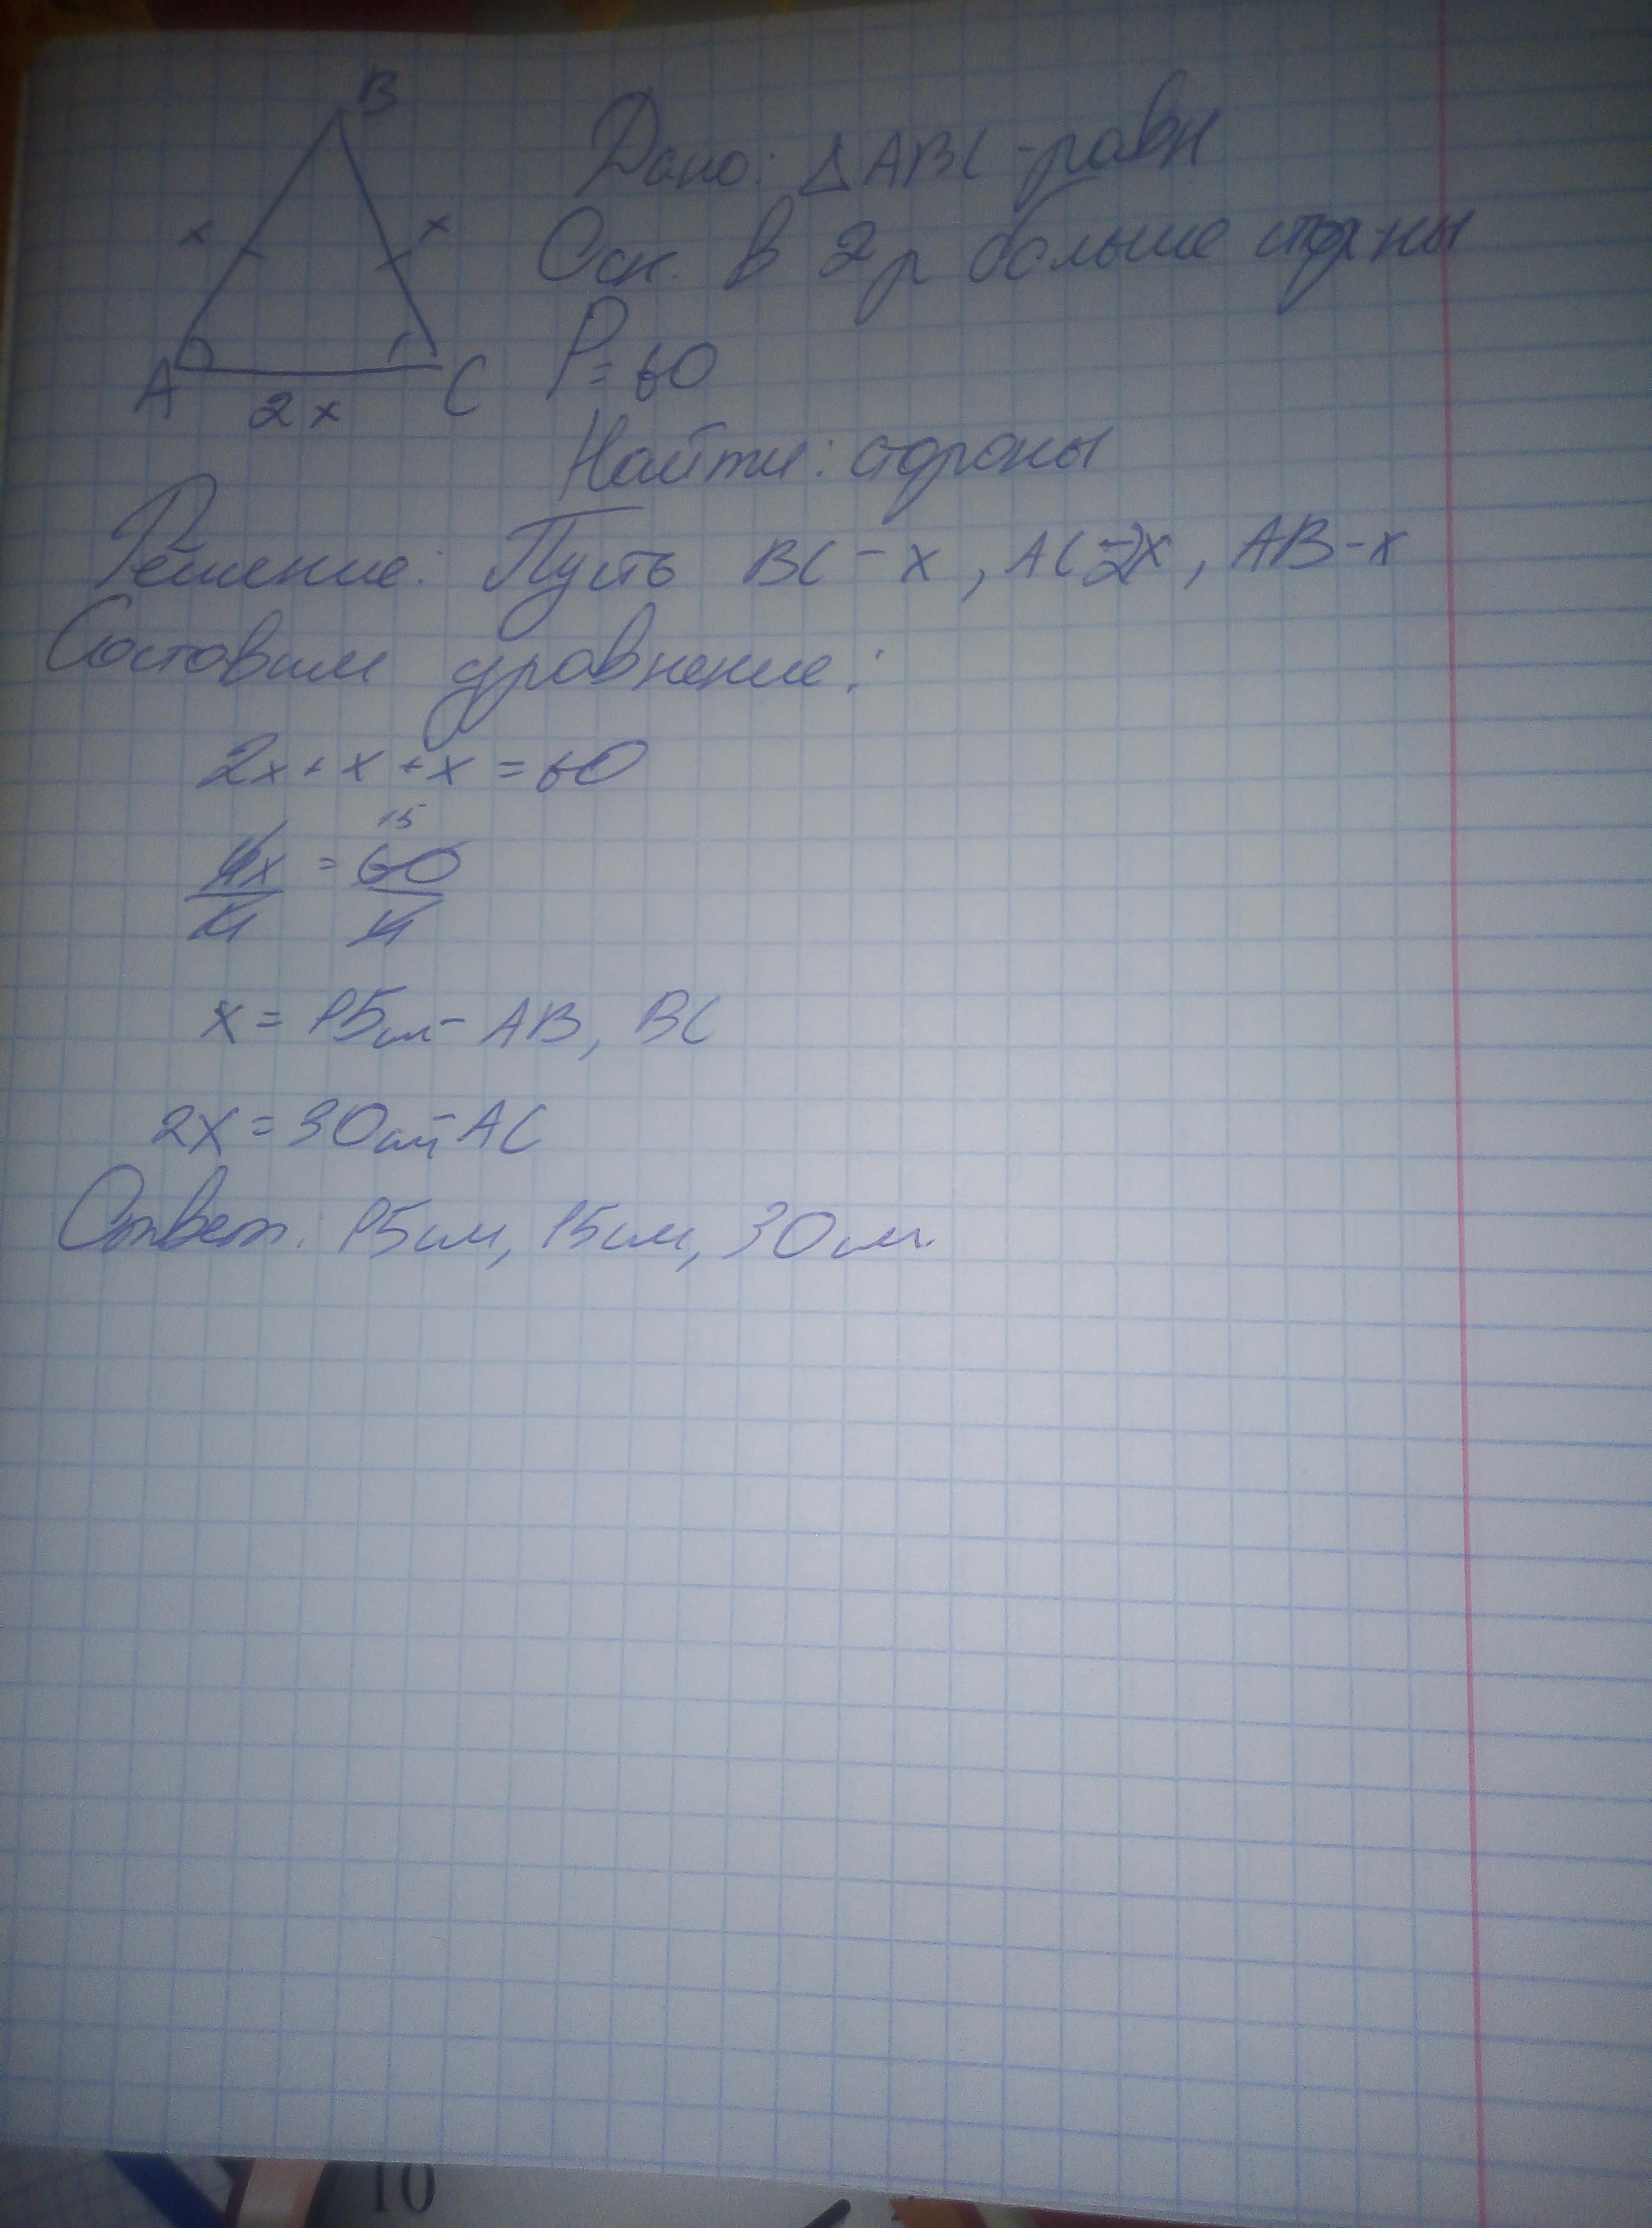 B
Дано: △ABC - равн
x x
Осн. в 2 р больше стор-ны
P = 60
A 2x C
Найти: стороны
Решение: Пусть BC - x, AC - 2x, AB - x
Составим уравнение:
2x + x + x = 60
15
4x = 60
4 4
x = 15см - AB, BC
2x = 30см - AC
Ответ: 15см, 15см, 30см.
10